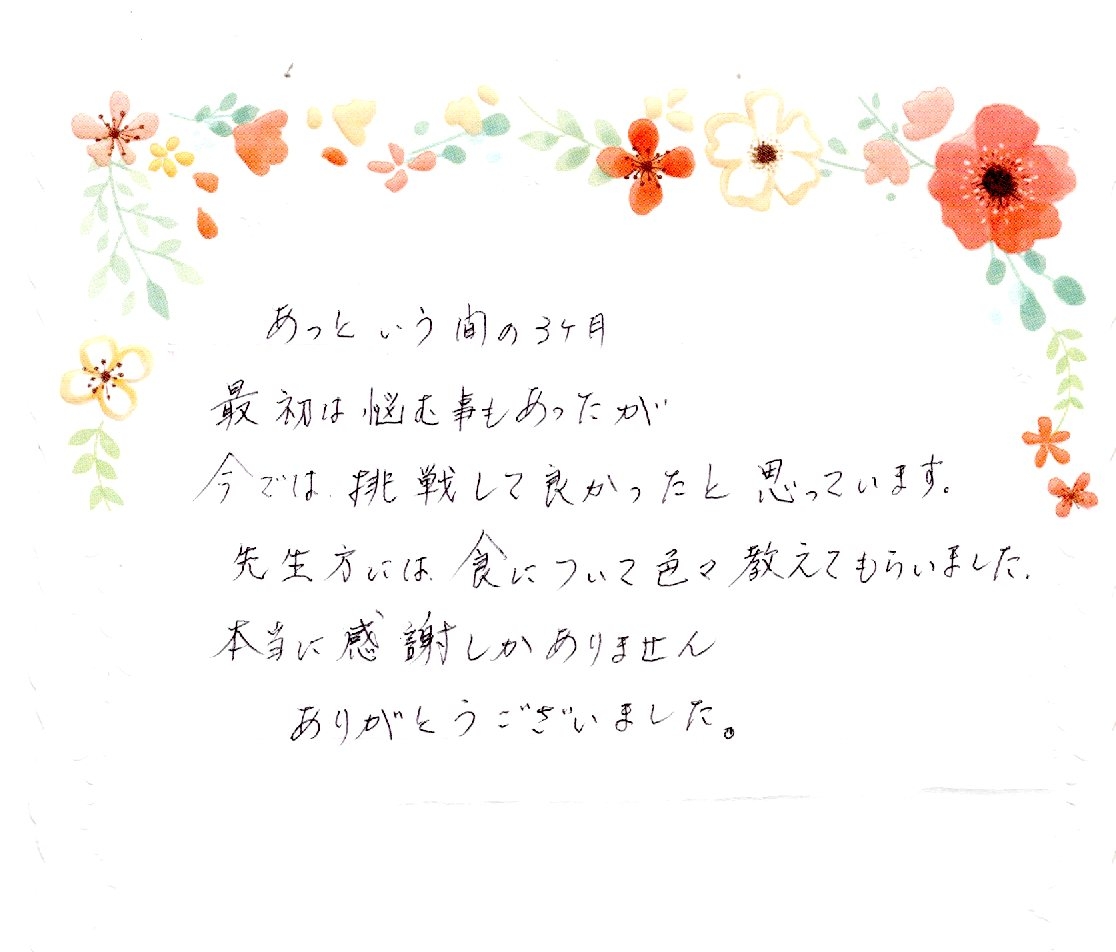 あっという間の3ヶ月
最初は悩む事もあったが
今では、挑戦して良かったと思っています。
先生方には、食について色々教えてもらいました。
本当に感謝しかありません
ありがとうございました。